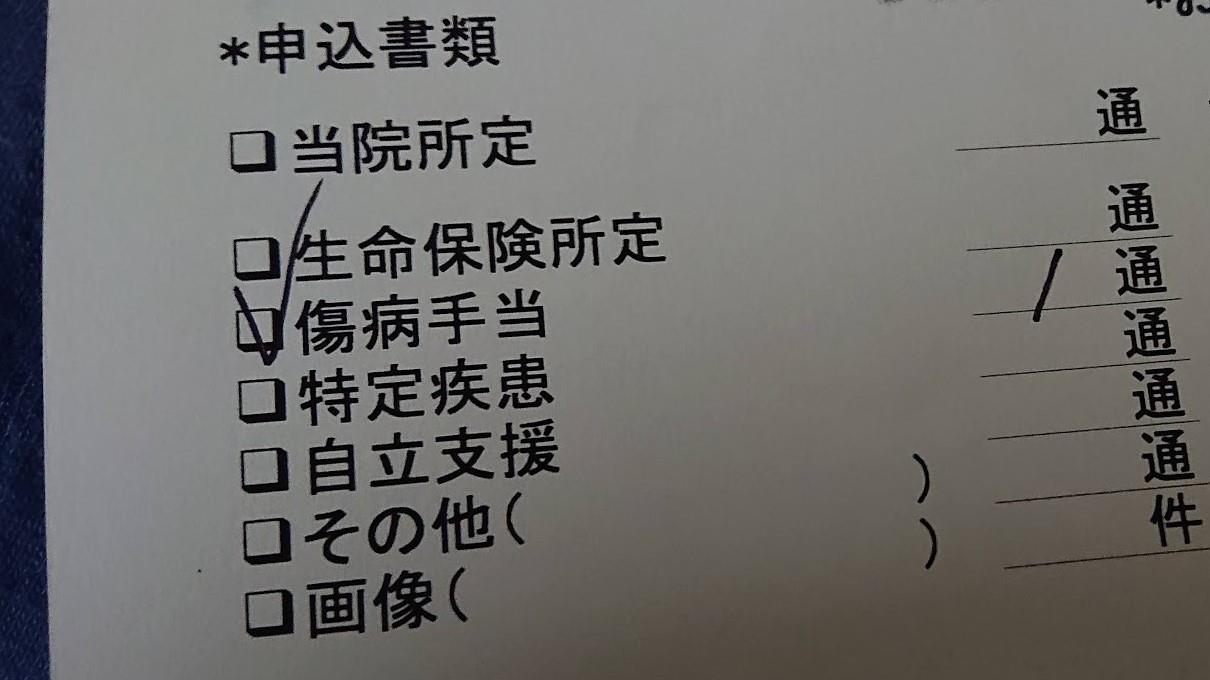 *申込書類
❑当院所定 通
❑生命保険所定 通
☑傷病手当 1通
❑特定疾患 通
❑自立支援 通
❑その他( ) 通
❑画像( ) 件